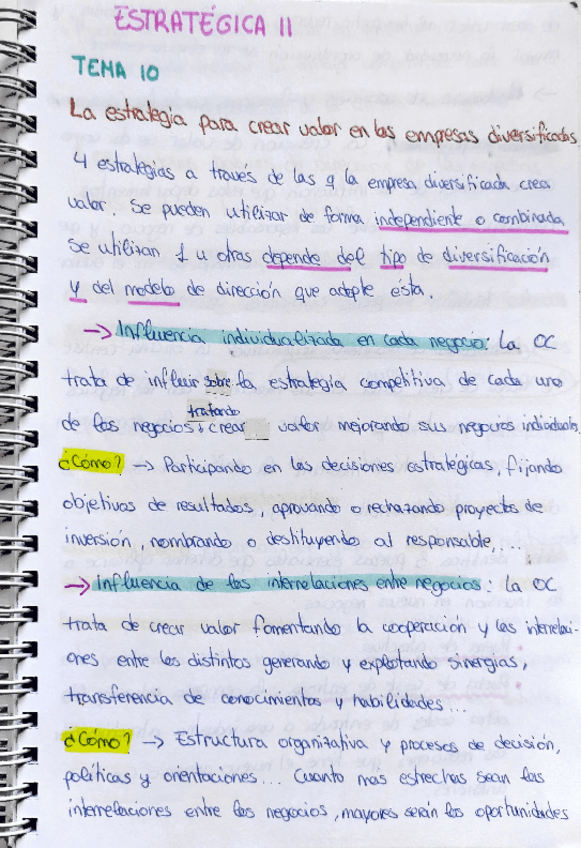 ESTRATÉGICA II
TEMA 10
La estrategia para crear valor en las empresas diversificadas.
4 estrategias a traves de las q la empresa diversificada crea
valor. Se pueden utilizar de forma independiente o combinada
Se utilizan 1 u otras depende del tipo de diversificación
y del modelo de dirección que adopte ésta.
→ Influencia individualizada en cada negocio: la OC
trata de influir sobre la estrategia competitiva de cada uno
tratando
de los negocios crear valor mejorando sus negocios individuals.
¿Cómo? → Participando en las decisiones estratégicas, fijando
objetivos de resultados, aprovando o rechazando proyectos de
inversión, nombrando o destituyendo al responsable,...
→ Influencia de las interrelaciones entre negocios: la OC
trata de crear valor fomentando la cooperación y las interrelaci-
ones entre los distintos generando y explotando sinergias,
transferencia de conocimientos y habilidades...
¿Cómo? → Estructura organitativa y procesos de decisión,
políticas y orientaciones... Cuanto mas estrechas sean las
interrelaciones entre los negocios, mayores serán las oportunidades